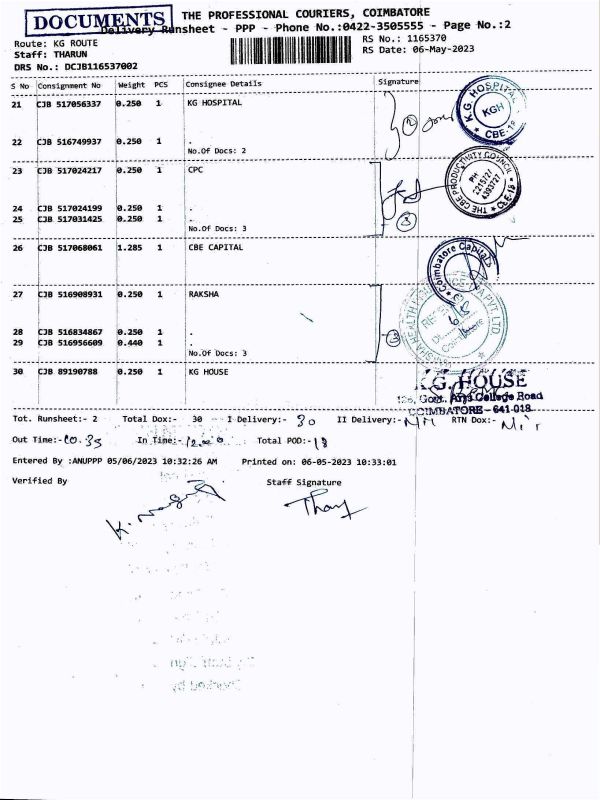 DOCUMENTS
THE PROFESSIONAL COURIERS, COIMBATORE
Delivery Runsheet - PPP - Phone No.:0422-3505555 - Page No.:2
Route: KG ROUTE
RS No.: 1165370
Staff: THARUN
RS Date: 06-May-2023
DRS No.: DCJB116537002
S No Consignment No Weight PCS Consignee Details Signature
21 CJB 517056337 0.250 1 KG HOSPITAL
K.G. HOSPITAL
KGH
CBE-18
2
22 CJB 516749937 0.250 1 .
No.Of Docs: 2
23 CJB 517024217 0.250 1 CPC
THE CBE PRODUCTIVITY COUNCIL
PH
2215727
4393727
CBE-18
24 CJB 517024199 0.250 1 .
25 CJB 517031425 0.250 1 .
No.Of Docs: 3
3
26 CJB 517068061 1.285 1 CBE CAPITAL
Coimbatore Capitals
27 CJB 516908931 0.250 1 RAKSHA
28 CJB 516834867 0.250 1 .
29 CJB 516956609 0.440 1 .
No.Of Docs: 3
3
PVT. LTD
Coimbatore
30 CJB 89190788 0.250 1 KG HOUSE
K.G. HOUSE
126, Govt. Arts College Road
COIMBATORE - 641 018
Tot. Runsheet:- 2 Total Dox:- 30 I Delivery:- 30 II Delivery:- Nil RTN Dox:- Nil
Out Time:- 10.35 In Time:- 12.00 Total POD:- 18
Entered By :ANUPPP 05/06/2023 10:32:26 AM Printed on: 06-05-2023 10:33:01
Verified By Staff Signature